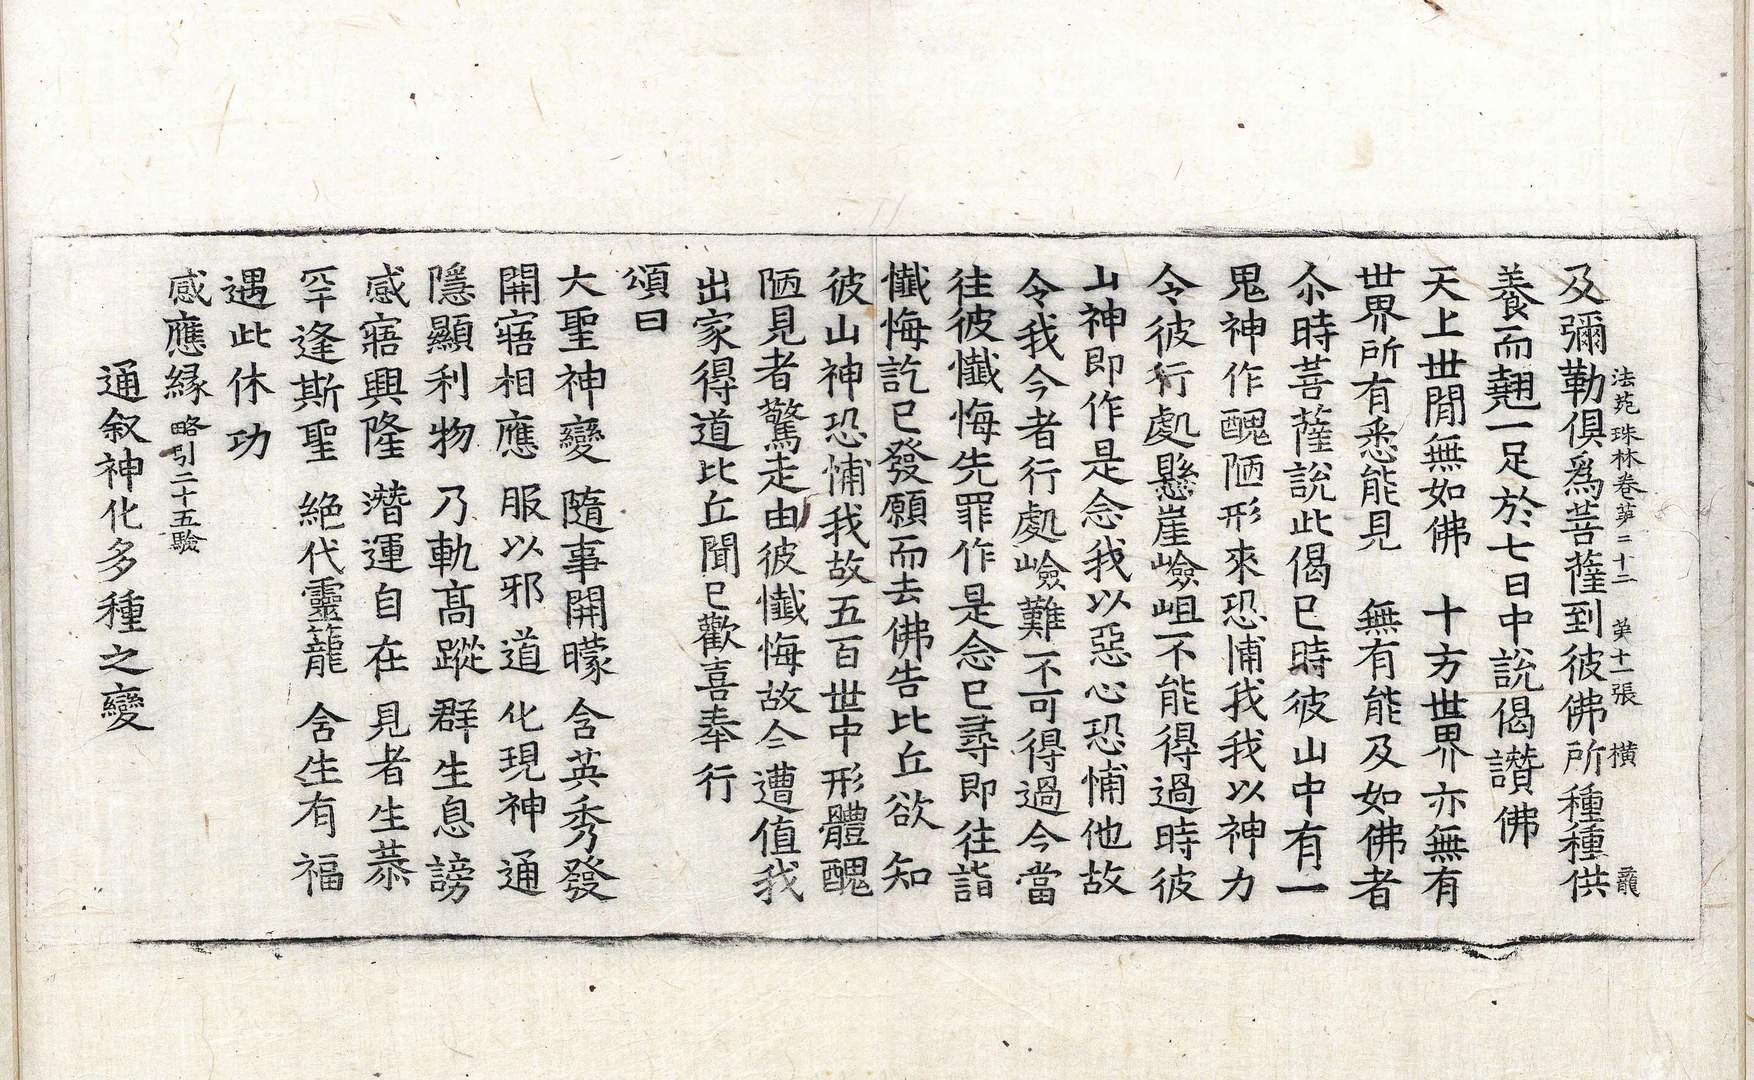 法苑珠林卷苐二十二　苐十一張　横　龍
及彌勒俱爲菩薩到彼佛所種種供
養而翹一足於七日中說偈讃佛
天上世閒無如佛　十方世界亦無有
世界所有悉能見　無有能及如佛者
尒時菩薩說此偈已時彼山中有一
鬼神作醜陋形來恐怖我我以神力
令彼行處懸崖嶮岨不能得過時彼
山神即作是念我以惡心恐怖他故
令我今者行處嶮難不可得過今當
往彼懺悔先罪作是念已尋即往詣
懺悔訖已發願而去佛告比丘欲知
彼山神恐怖我故五百世中形體醜
陋見者驚走由彼懺悔故今遭值我
出家得道比丘聞已歡喜奉行
頌曰
大聖神變　隨事開曚　含英秀發
開寤相應　服以邪道　化現神通
隱顯利物　乃軌髙蹤　群生息謗
感寤興隆　潛運自在　見者生恭
罕逢斯聖　絶代靈龍　含生有福
遇此休功
感應緣略引二十五驗
通叙神化多種之變